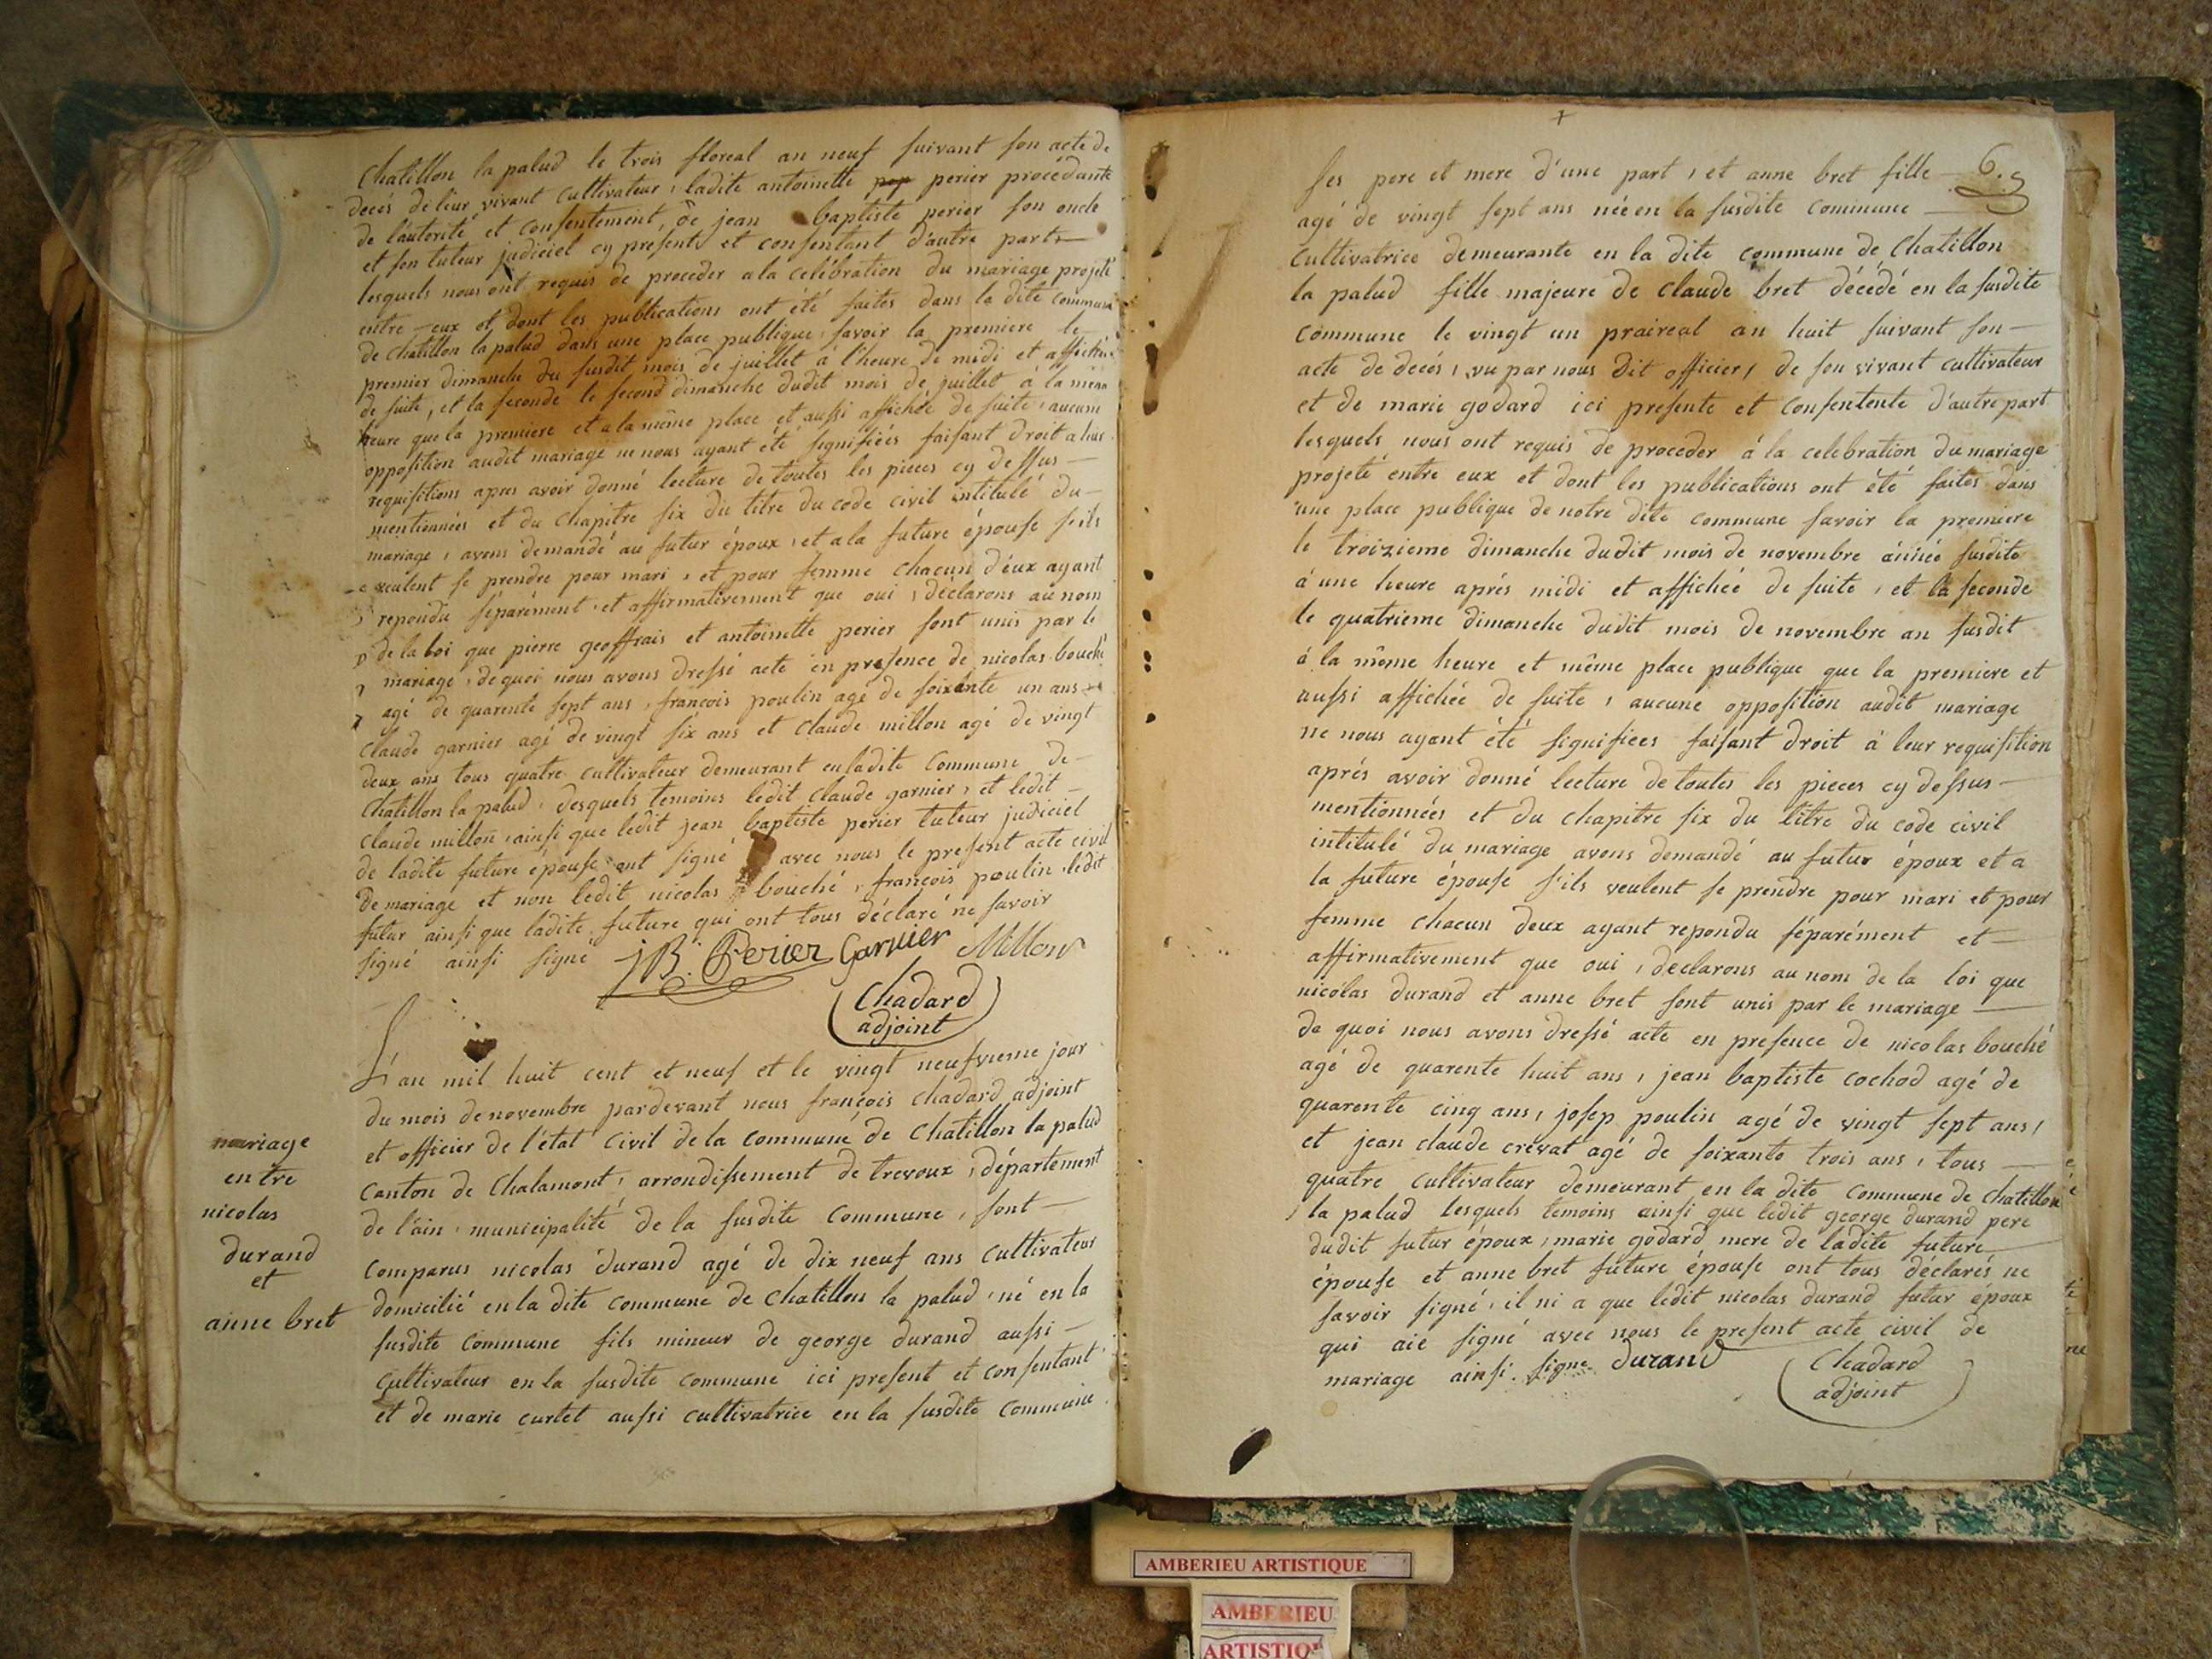 Chatillon la palud le trois floreal an neuf suivant son acte de
decés de leur vivant cultivateur, ladite antoinette perier procédante
de l'autorité et consentement, de jean baptiste perier son oncle
et son tuteur judiciel cy present, et consentant d'autre part
lesquels nous ont requis de proceder a la celébration du mariage projeté
entre-eux et dont les publications ont été faites dans la dite commune
de chatillon la palud dans une place publique, savoir la premiere le
premier dimanche du susdit mois de juillet a l'heure de midi et affichée
de suite, et la seconde le second dimanche dudit mois de juillet à la même
heure que la premiere et a la même place et aussi affichée de suite, aucune
opposition audit mariage ne nous ayant été signifiées faisant droit a leurs
requisitions apres avoir donné lecture de toutes les pieces cy dessus
mentionnées et du chapitre six du titre du code civil intitulé du
mariage, avons demandé au futur époux, et a la future épouse s'ils
veulent se prendre pour mari, et pour femme chacun d'eux ayant
repondu séparément, et affirmativement que oui, déclarons au nom
de la loi que pierre geoffrais et antoinette perier sont unis par le
mariage, de quoi nous avons dressé acte en presence de nicolas bouché
agé de quarente sept ans, francois poulin agé de soixante un ans
claude garnier agé de vingt six ans et claude millon agé de vingt
deux ans tous quatre cultivateur demeurant en ladite commune de
chatillon la palud, desquels temoins ledit claude garnier, et ledit
claude millon, ainsi que ledit jean baptiste perier tuteur judiciel
de ladite future épouse ont signé avec nous le present acte civil
de mariage et non ledit nicolas bouché, françois poulin, ledit
futur ainsi que ladite future qui ont tous déclaré ne savoir
signé ainsi signé JB. Perier Garnier Millon
Chadard
adjoint
L'an mil huit cent et neuf et le vingt neufvieme jour
du mois de novembre pardevant nous françois chadard adjoint
et officier de l'état civil de la commune de chatillon la palud
canton de chalamont, arrondissement de trevoux, département
de l'ain, municipalité de la susdite commune, sont
comparus nicolas durand agé de dix neuf ans cultivateur
domicilié en la dite commune de chatillon la palud, né en la
susdite commune fils mineur de george durand aussi
cultivateur en la susdite commune ici present et consentant
et de marie curtet aussi cultivatrice en la susdite commune
mariage
entre
nicolas
durand
et
anne bret
6.
ses pere et mere d'une part, et anne bret fille
agé de vingt sept ans née en la susdite commune
cultivatrice demeurante en la dite commune de chatillon
la palud fille majeure de claude bret décédé en la susdite
commune le vingt un praireal an huit suivant son
acte de decés, vu par nous dit officier, de son vivant cultivateur
et de marie godard ici presente et consentente d'autre part
lesquels nous ont requis de proceder á la celebration du mariage
projeté entre eux et dont les publications ont été faites dans
une place publique de notre dite commune savoir la premiere
le troizieme dimanche dudit mois de novembre année susdite
á une heure aprés midi et affichée de suite, et la seconde
le quatrieme dimanche dudit mois de novembre an susdit
á la même heure et même place publique que la premiere et
aussi affichée de suite, aucune opposition audit mariage
ne nous ayant été signifiees faisant droit á leur requisition
aprés avoir donné lecture de toutes les pieces cy dessus
mentionnées et du chapitre six du titre du code civil
intitulé du mariage avons demandé au futur époux et a
la future épouse s'ils veulent se prendre pour mari et pour
femme chacun deux ayant repondu séparément et
affirmativement que oui, declarons au nom de la loi que
nicolas durand et anne bret sont unis par le mariage
de quoi nous avons dressé acte en presence de nicolas bouché
agé de quarente huit ans, jean baptiste cochod agé de
quarente cinq ans, josep poulin agé de vingt sept ans,
et jean claude crevat agé de soixante trois ans, tous
quatre cultivateur demeurant en la dite commune de chatillon
la palud lesquels temoins ainsi que ledit george durand pere
dudit futur époux, marie godard mere de ladite future
épouse et anne bret future épouse ont tous déclarés ne
savoir signé, il ni a que ledit nicolas durand futur époux
qui aie signé avec nous le present acte civil de
mariage ainsi signe durand
Chadard
adjoint
AMBERIEU ARTISTIQUE
AMBERIEU